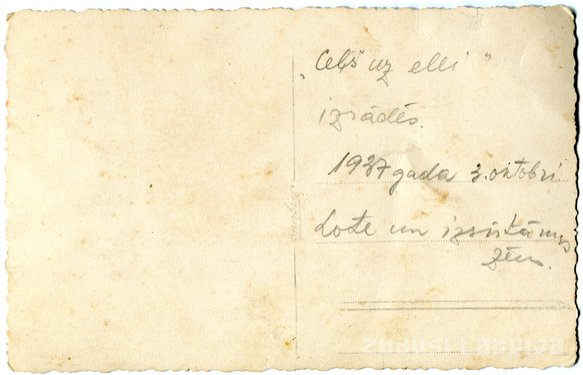 „Ceļš uz elli"
izrādēs.
1937 gada 3. oktobrī
Lote un izsūtāmais
zēns.